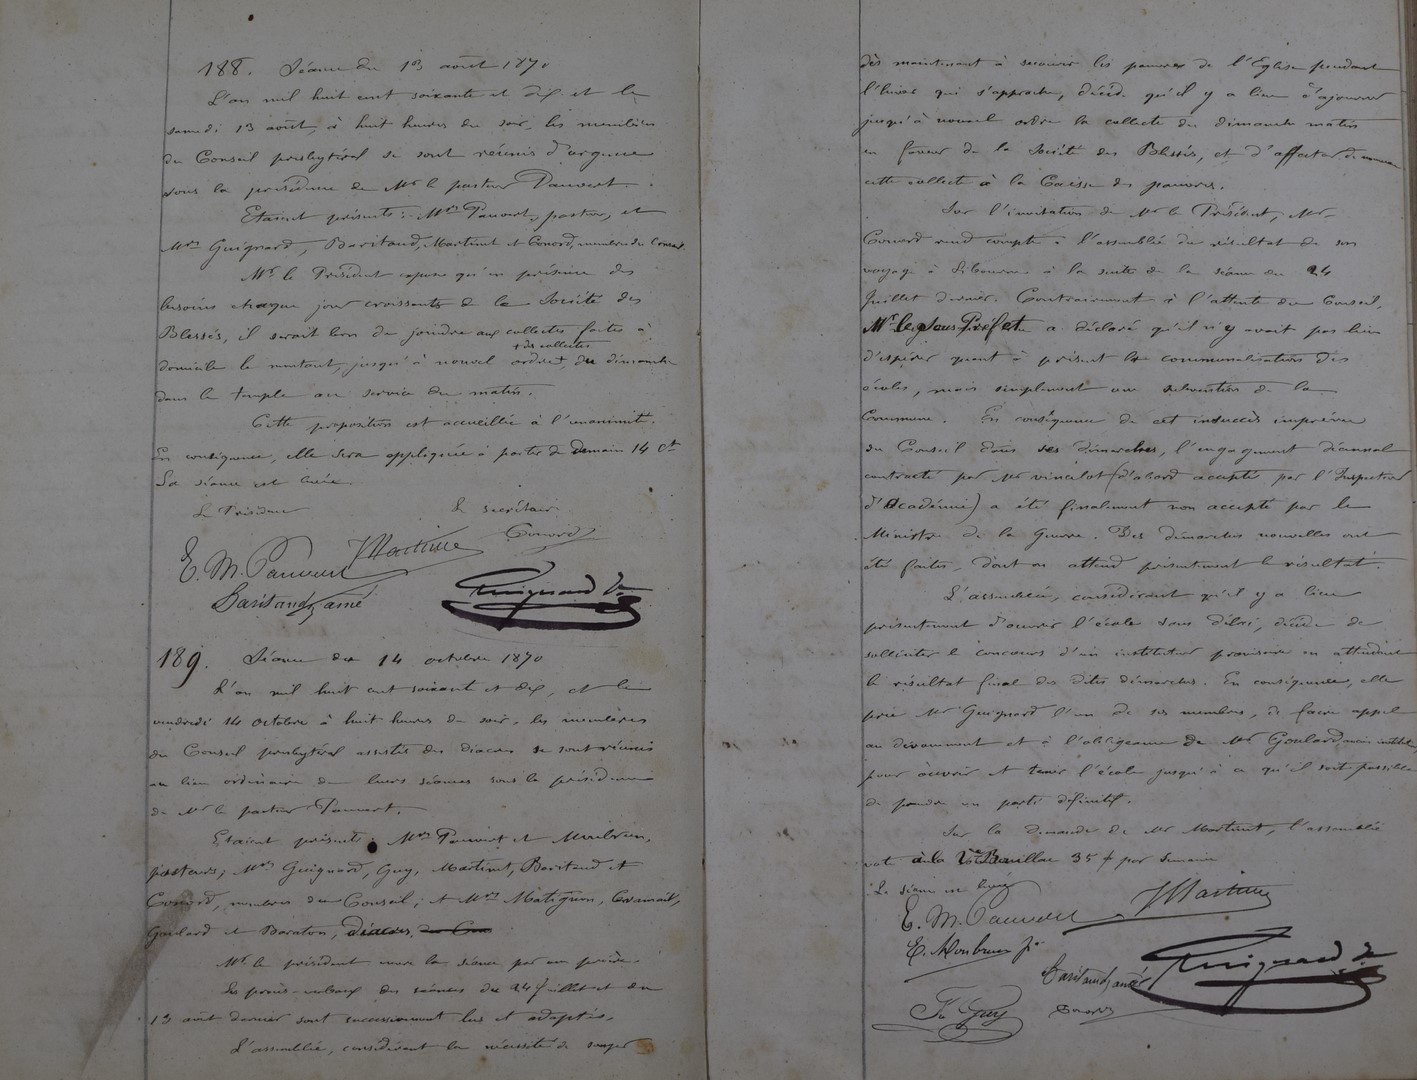 188. Séance du 13 août 1870
L'an mil huit cent soixante et dix et le
samedi 13 août, à huit heures du soir, les membres
du Conseil presbytéral se sont réunis d'urgence
sous la présidence de Mr le pasteur Pauvert.
Etaient présents : Mrs Pauvert, pasteur, et
Mrs Guignard, Baritaud, Martinet et Conord, membres du Conseil.
Mr le Président expose qu'en présence des
besoins chaque jour croissants de la Société des
Blessés, il serait bon de joindre aux collectes faites à
+ des collectes
domicile le montant, jusqu'à nouvel ordre +, du dimanche
dans le temple au service du matin.
Cette proposition est accueillie à l'unanimité.
En conséquence, elle sera appliquée à partir de demain 14 Ct
La séance est levée.
Le Président
Le secrétaire
E. M. Pauvert Martinet Conord
Baritaud, aîné Guignard
189. Séance du 14 octobre 1870
L'an mil huit cent soixante et dix, et le
vendredi 14 octobre à huit heures du soir, les membres
du Conseil presbytéral assistés des diacres se sont réunis
au lieu ordinaire de leurs séances sous la présidence
de Mr le pasteur Pauvert.
Etaient présents : Mrs Pauvert et Monbrun,
pasteurs, Mrs Guignard, Guy, Martinet, Baritaud et
Conord, membres du Conseil ; et Mrs Matignon,
Goulard et Baraton, diacres.
Mr le président ouvre la séance par une prière.
Les procès-verbaux des séances du 24 juillet et du
13 août dernier sont successivement lus et adoptés.
L'assemblée, considérant la nécessité de songer
dès maintenant à secourir les pauvres de l'Eglise pendant
l'hiver qui s'approche, décide qu'il y a lieu d'ajourner
jusqu'à nouvel ordre la collecte du dimanche matin
en faveur de la Société des Blessés, et d'affecter de nouveau
cette collecte à la Caisse des pauvres.
Sur l'invitation de Mr le Président, Mr
Conord rend compte à l'assemblée du résultat de son
voyage à Libourne à la suite de la séance du 24
Juillet dernier. Contrairement à l'attente du Conseil,
Mr le Sous-Préfet a déclaré qu'il n'y avait pas lieu
d'espérer quant à présent la communalisation des
écoles, mais simplement une subvention de la
Commune. En conséquence de cet insuccès imprévu
du Conseil dans ses démarches, l'engagement décennal
contracté par Mr Vincelot (d'abord accepté par l'Inspecteur
d'Académie) a été finalement non accepté par le
Ministre de la Guerre. Des démarches nouvelles ont
été faites, dont on attend présentement le résultat.
L'assemblée, considérant qu'il y a lieu
présentement d'ouvrir l'école sans délai, décide de
solliciter le concours d'un instituteur provisoire en attendant
le résultat final des dites démarches. En conséquence, elle
prie Mr Guignard l'un de ses membres, de faire appel
au dévouement et à l'obligeance de Mr Goulard ancien instituteur,
pour ouvrir et tenir l'école jusqu'à ce qu'il soit possible
de prendre un parti définitif.
Sur la demande de Mr Martinet, l'assemblée
vote à la 35 f par semaine
La séance est levée
E. M. Pauvert Martinet
E. Monbrun Baritaud, aîné Guignard
Guy Conord